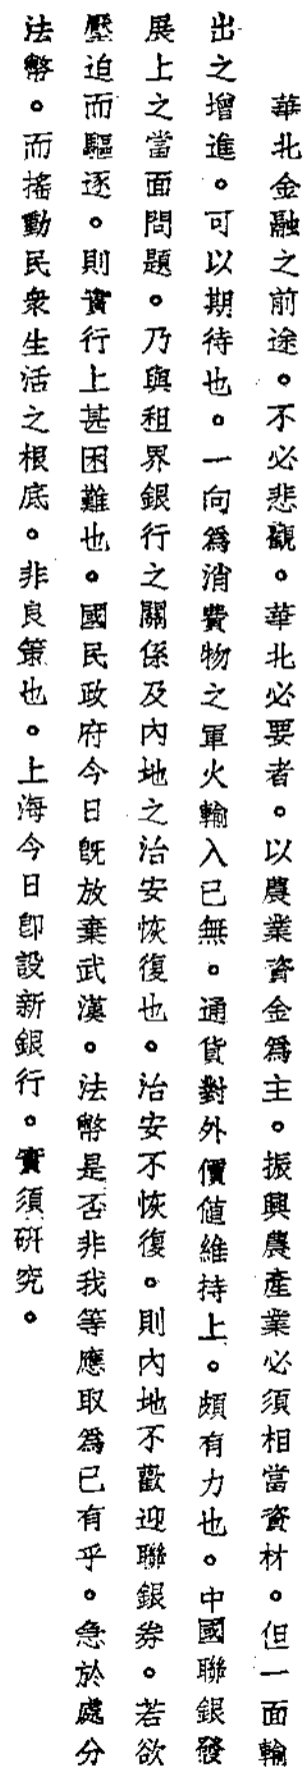 華北金融之前途。不必悲觀。華北必要者。以農業資金爲主。振興農產業必須相當資材。但一面輸
出之增進。可以期待也。一向爲消費物之軍火輸入已無。通貨對外價値維持上。頗有力也。中國聯銀發
展上之當面問題。乃與租界銀行之關係及內地之治安恢復也。治安不恢復。則內地不歡迎聯銀券。若欲
壓迫而驅逐。則實行上甚困難也。國民政府今日旣放棄武漢。法幣是否非我等應取爲已有乎。急於處分
法幣。而搖動民衆生活之根底。非良策也。上海今日卽設新銀行。實須硏究。